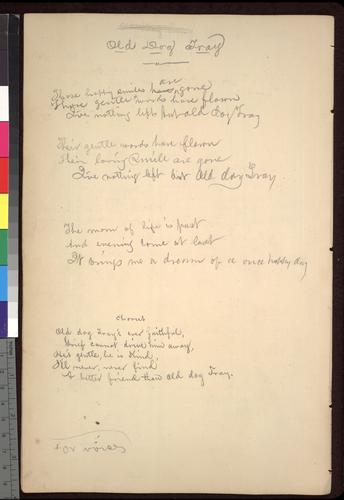 Old Dog Tray
are
Those happy smiles have gone
Those gentle words have flown
I've nothing left but old dog Tray
Their gentle words have flown
Their loving smile are gone
I've nothing left but Old dog Tray
The morn of life is past
And evening come at last
It brings me a dream of a once happy day
Chorus
Old dog Tray's ever faithful,
Grief cannot drive him away,
He's gentle, he is kind,
I'll never, never find
A better friend than old dog Tray.
For voices